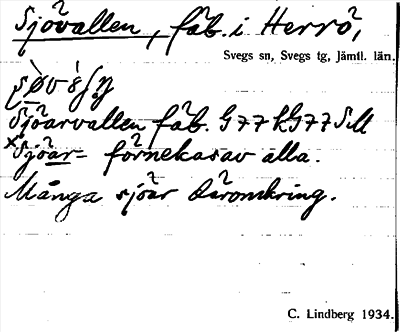 Sjövallen, fäb. i Herrö,
Svegs sn, Svegs tg, Jämtl. län.
Sjöarvallen fäb. G77 kG77 SM
×Sjöar- förnekas av alla.
Många sjöar däromkring.
C. Lindberg 1934.